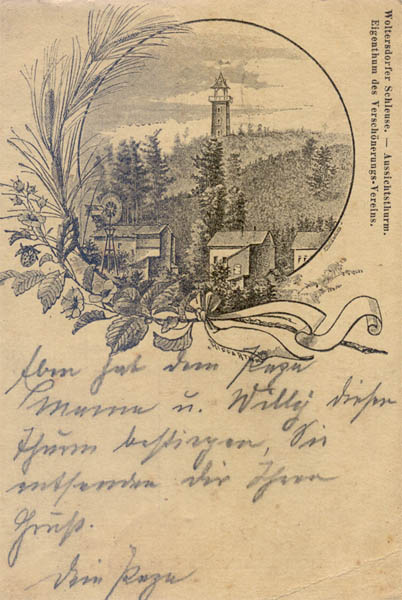 Woltersdorfer Schleuse. — Aussichtsthurm.
Eigenthum des Verschönerungs-Vereins.
Eben hat dem Papa
Mama u. Willy diesen
Thurm bestiegen, Sie
entsenden dir Ihren
Gruß.
Dein Papa